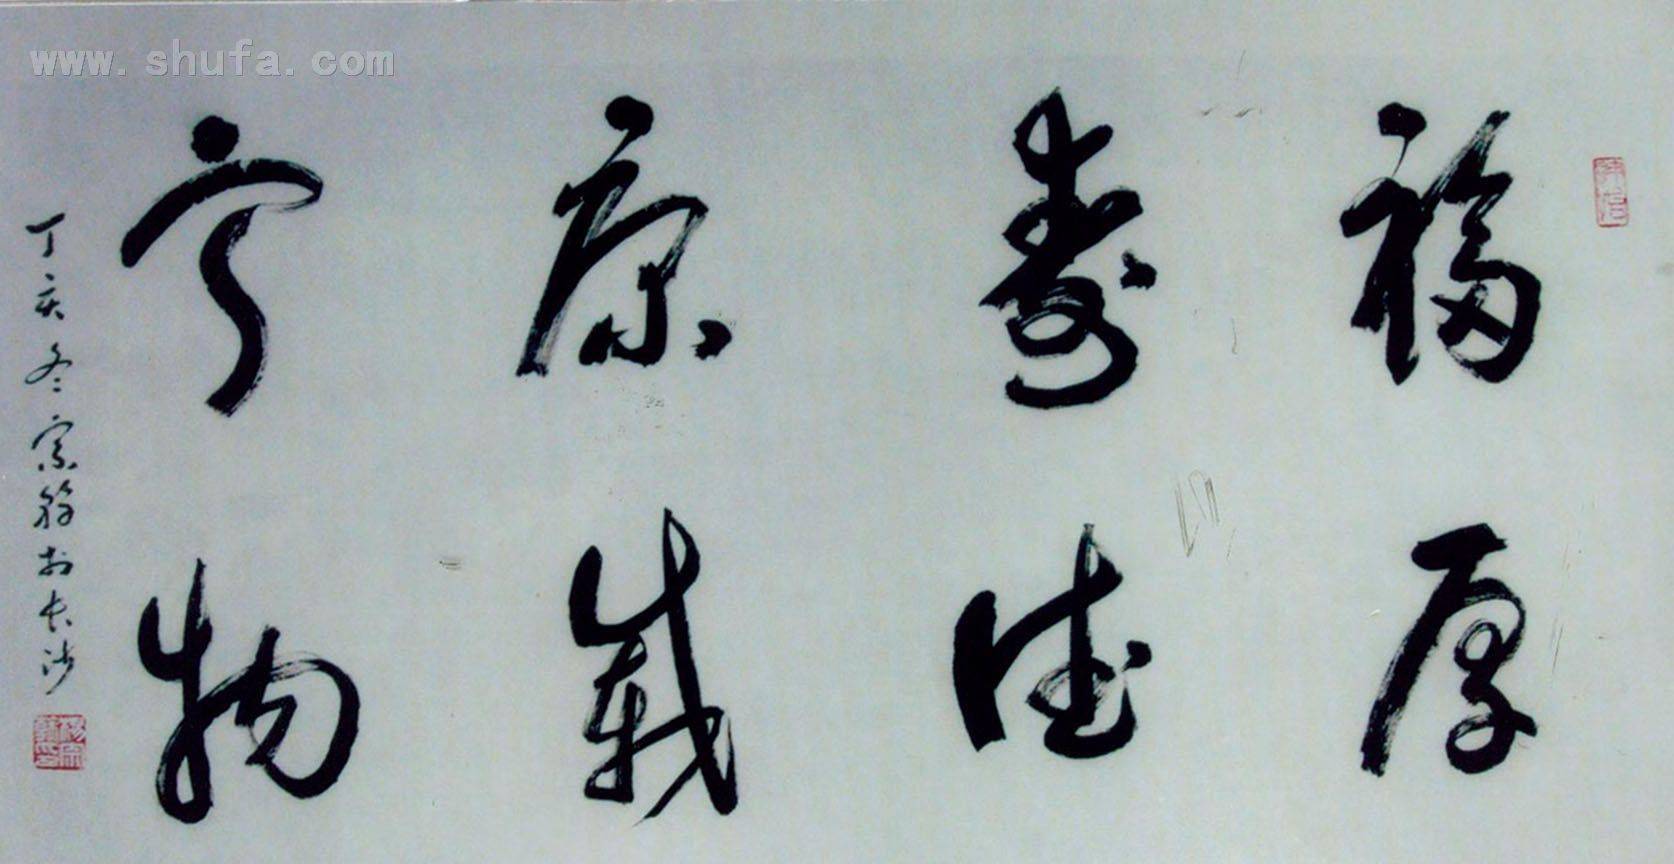 www.shufa.com
福寿康宁
厚德载物
丁亥冬宗翁于长沙